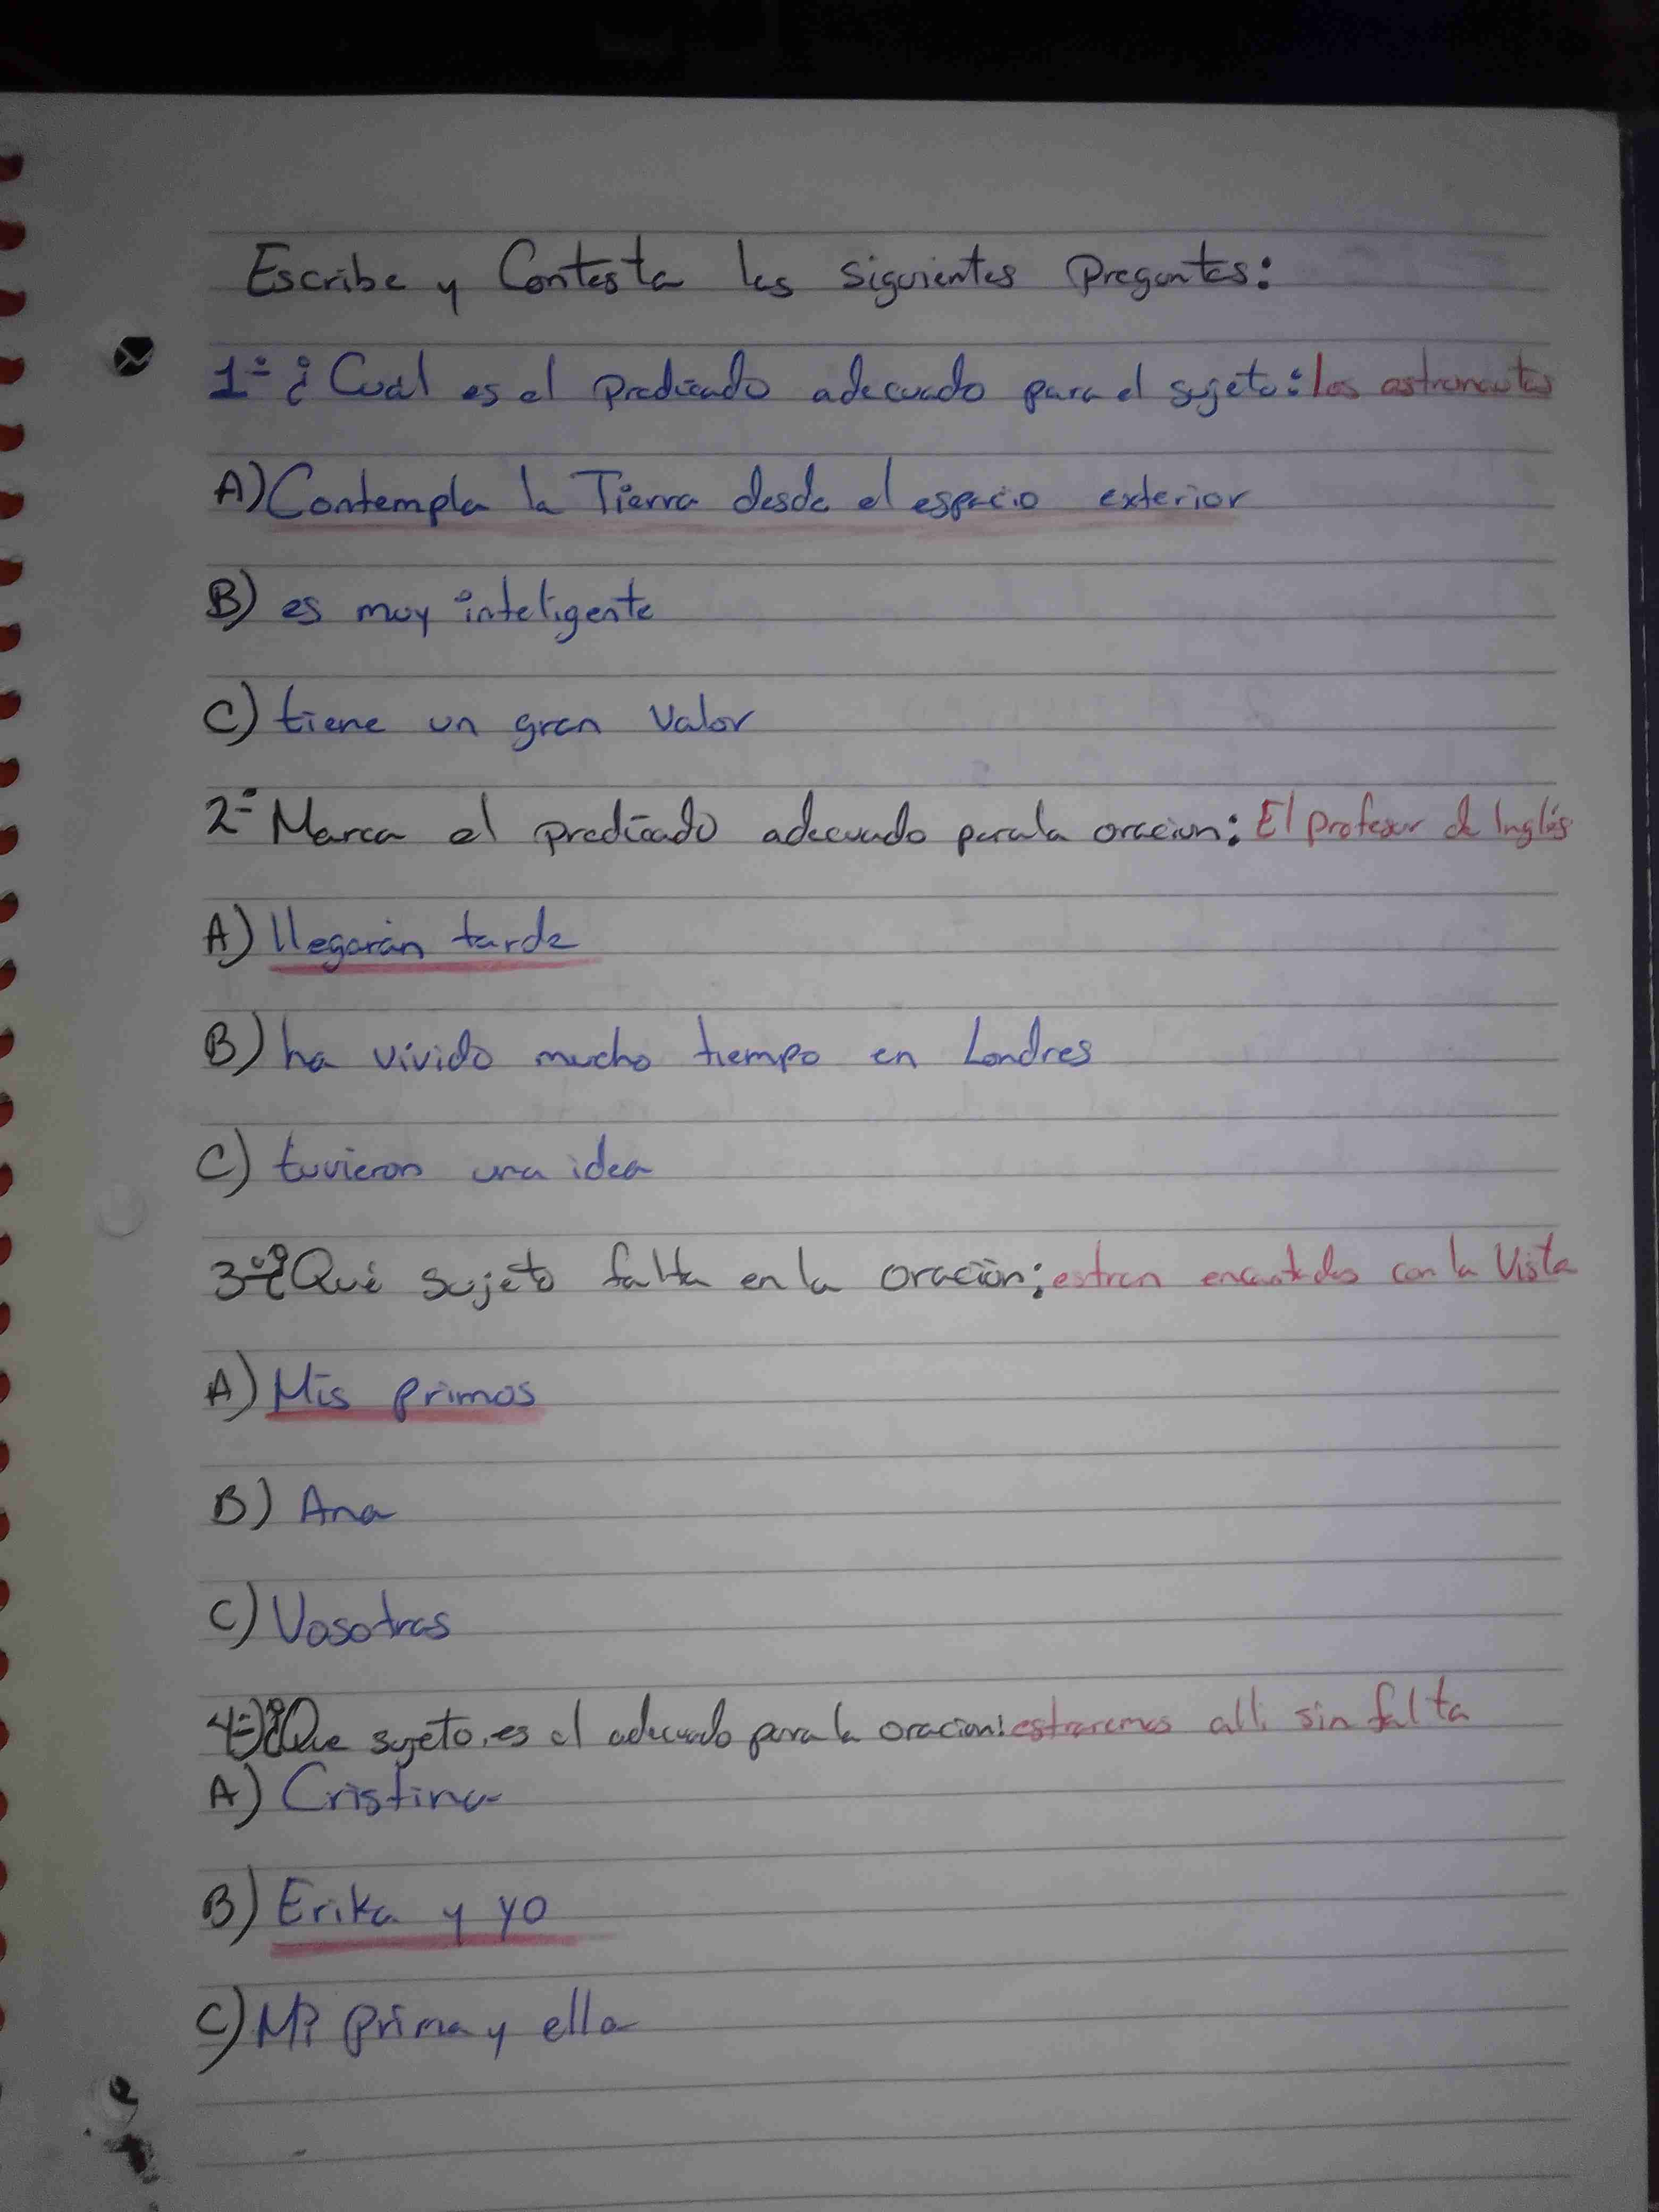 Escribe y Contesta las siguientes preguntas:
1- ¿Cual es el predicado adecuado para el sujeto: los astronautas
A) Contempla la Tierra desde el espacio exterior
B) es muy inteligente
C) tiene un gran valor
2- Marca el predicado adecuado para la oracion: El profesor de Inglés
A) llegarán tarde
B) ha vivido mucho tiempo en Londres
C) tuvieron una idea
3-¿Qué sujeto falta en la oración: estran encantados con la vista
A) Mis primos
B) Ana
C) Vosotras
4-)¿Que sujeto es el adecuado para la oracion: estraremos alli sin falta
A) Cristina
B) Erika y yo
C) Mi prima y ella